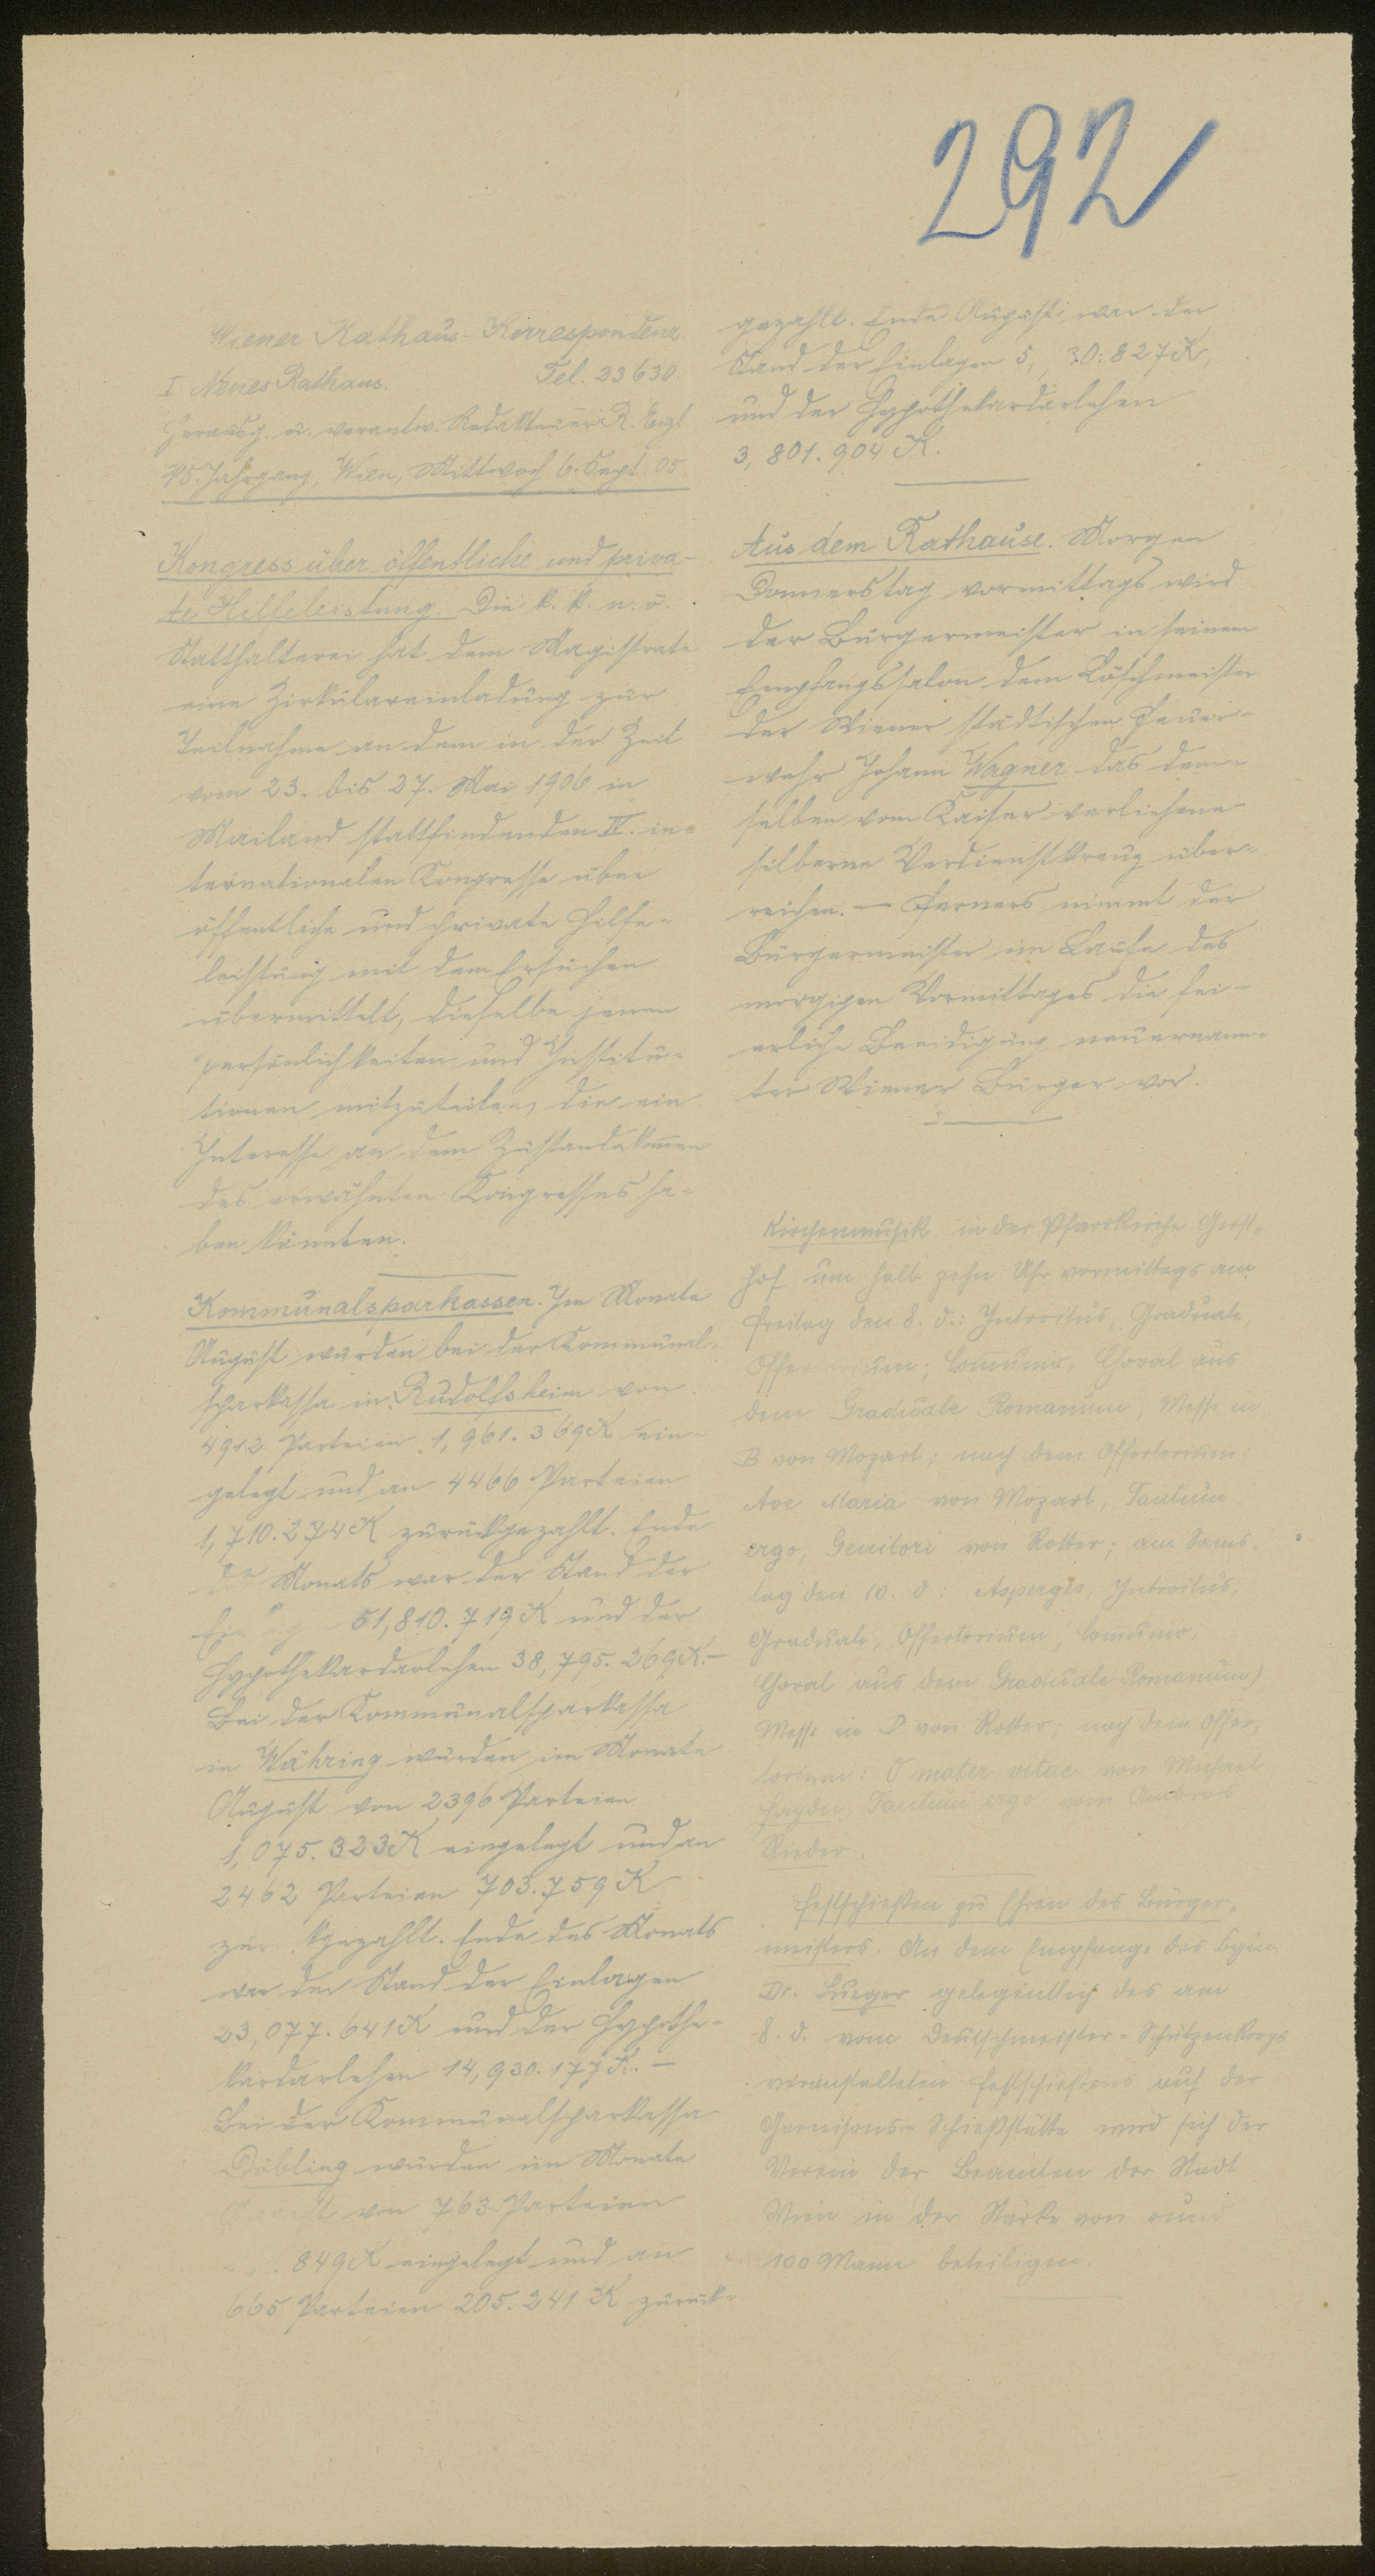 292
Wiener Rathaus-Korrespondenz.
I. Neues Rathaus. Tel. 23630.
Herausg. u. verantw. Redakteur R. Eigl.
Jahrgang, Wien, Mittwoch 6. Sept. 05
Kongress über öffentliche und priva-
te Hilfeleistung. Die k. k. n. ö.
Statthalterei hat dem Magistrate
eine Zirkulareinladung zur
Teilnahme an dem in der Zeit
vom 23. bis 27. Mai 1906 in
Mailand stattfindenden IV. in-
ternationalen Kongresse über
öffentliche und private Hilfe-
leistung mit dem Ersuchen
übermittelt, dieselbe jenen
Persönlichkeiten und Institu-
tionen mitzuteilen, die ein
Interesse an dem Zustandekommen
des erwähnten Kongresses ha-
ben könnten.
Kommunalsparkassen. Im Monate
August wurden bei der Kommunal-
sparkassa in Rudolfsheim von
4912 Parteien 1,961.369 K ein-
gelegt und an 4466 Parteien
1,710.274 K zurückgezahlt. Ende
des Monats war der Stand der
51,810.719 K und der
Hypothekardarlehen 38,795.269 K. —
Bei der Kommunalsparkassa
in Währing wurden im Monate
August von 2396 Parteien
1,075.323 K eingelegt und an
2462 Parteien 703.759 K
zurückgezahlt. Ende des Monats
war der Stand der Einlagen
23,077.641 K und der Hypothe-
kardarlehen 14,930.177 K. —
Bei der Kommunalsparkassa
Döbling wurden im Monate
August von 763 Parteien
849 K eingelegt und an
665 Parteien 205.241 K zurück-
gezahlt. Ende August war der
Stand der Einlagen 5, 30.827 K,
und der Hypothekardarlehen
3,801.904 K.
Aus dem Rathause. Morgen
Donnerstag vormittags wird
der Bürgermeister in seinem
Empfangssalon dem Löschmeister
der Wiener städtischen Feuer-
wehr Johann Wagner das dem-
selben vom Kaiser verliehene
silberne Verdienstkreuz über-
reichen. — Ferners nimmt der
Bürgermeister im Laufe des
morgigen Vormittages die fei-
erliche Beeidigung neuernann-
ter Wiener Bürger vor.
Kirchenmusik in der Pfarrkirche Gerst-
hof um halb zehn Uhr vormittags am
Freitag den 8. d.: Introitus, Graduale,
Offertorium, Communio, Choral aus
dem Graduale Romanum, Messe in
B von Mozart; nach dem Offertorium:
Ave Maria von Mozart, Tantum
ergo, Genitori von Rotter; am Sams-
tag den 10. d: Asperges, Introitus,
Graduale, Offertorium, Communio,
Choral aus dem Graduale Romanum)
Messe in D von Rotter; nach dem Offer-
torium: O mater vitae von Michael
Haydn, Tantum ergo vom Ambros
Rieder.
Festschießen zu Ehren des Bürger-
meisters. An dem Empfange des Bgm.
Dr. Lueger gelegentlich des am
8. d. vom Deutschmeister-Schützenkorps
veranstalteten Festschießens auf der
Garnisons-Schießstätte wird sich der
Verein der Beamten der Stadt
Wien in der Stärke von rund
100 Mann beteiligen.